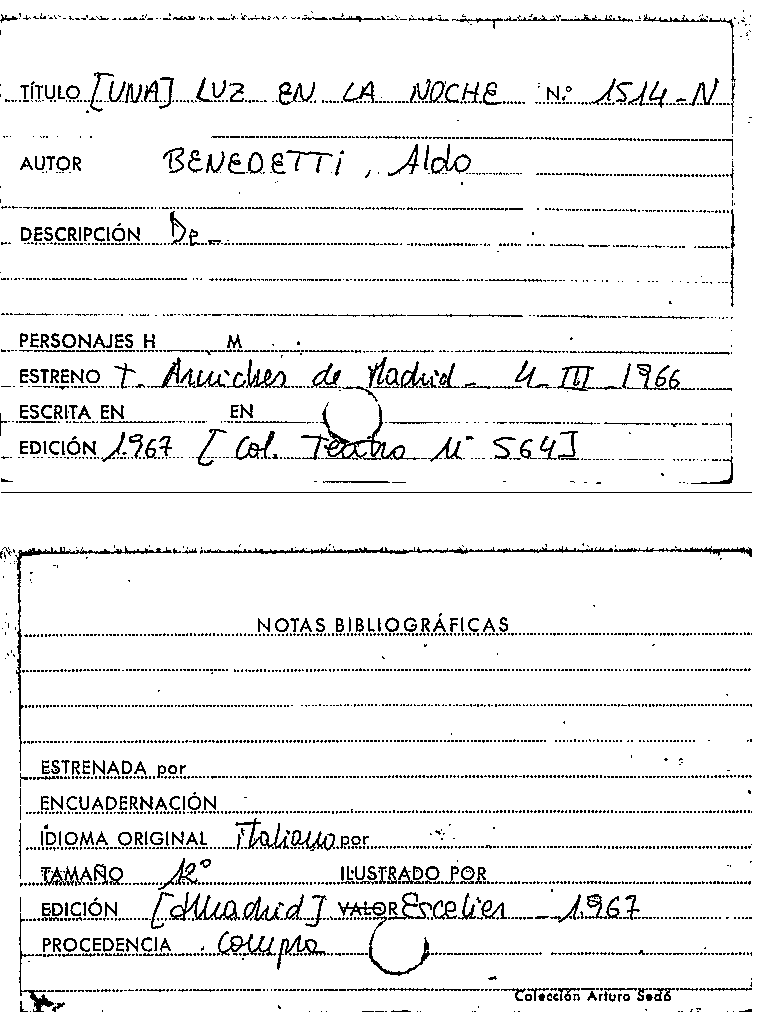 TÍTULO [UNA] LUZ EN LA NOCHE N.º 1514-N
AUTOR BENEDETTI, Aldo
DESCRIPCIÓN De_
PERSONAJES H M
ESTRENO T. Arniches de Madrid - 4-III-1966
ESCRITA EN EN
EDICIÓN 1.967 [Col. Teatro Nº 564]
NOTAS BIBLIOGRÁFICAS
ESTRENADA por
ENCUADERNACIÓN
IDIOMA ORIGINAL italiano por
TAMAÑO 12º ILUSTRADO POR
EDICIÓN [Madrid] VALOR Escelier - 1.967
PROCEDENCIA compra
Colección Arturo Sedó